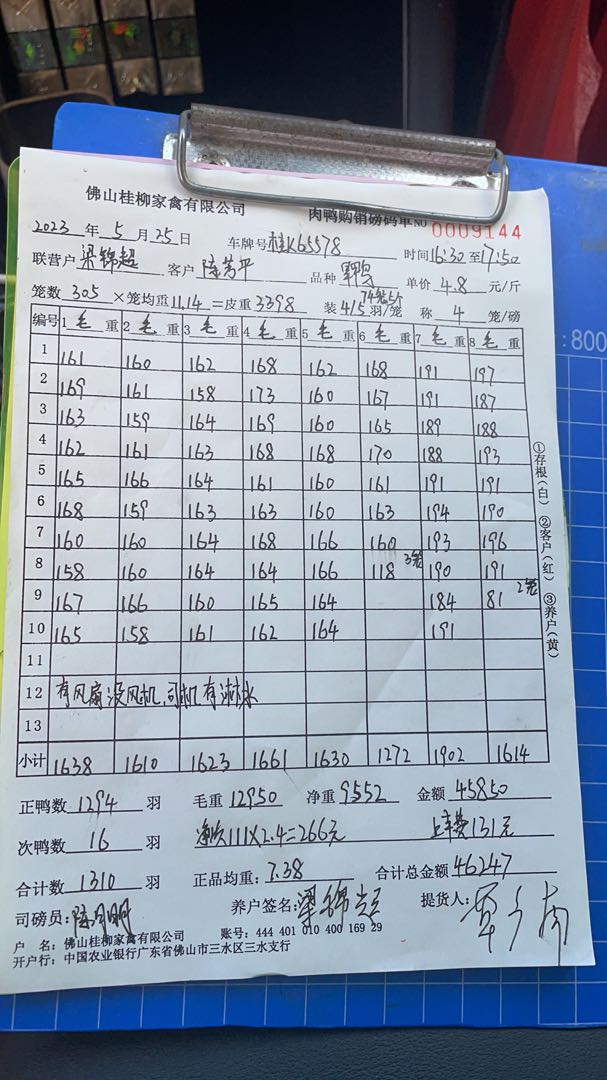 佛山桂柳家禽有限公司 肉鸭购销磅码单 NO 0009144
2023 年 5 月 25 日 车牌号 桂K65578 时间 16:30 至 17:50
联营户 梁锦超 客户 陈芳平 品种 单价 4.8 元/斤
笼数 305 ×笼均重 11.14 =皮重 3398 装 4/5 羽/笼 称 4 笼/磅
74笼5斤
编号 1 毛 重 2 毛 重 3 毛 重 4 毛 重 5 毛 重 6 毛 重 7 毛 重 8 毛 重
1 161 160 162 168 162 168 191 197
2 169 161 158 173 160 167 191 187
3 163 159 164 169 160 165 189 188
4 162 161 163 168 168 170 188 193
5 165 166 164 161 160 161 191 191
6 168 159 163 163 160 163 194 190
7 160 160 164 168 166 160 193 196
8 158 160 164 164 166 118 3笼 190 191
9 167 166 160 165 164 184 81 2笼
10 165 158 161 162 164 191
11
12 有风扇没风机,司机有淋水
13
小计 1638 1610 1623 1661 1630 1272 1902 1614
正鸭数 1294 羽 毛重 12950 净重 9552 金额 45850
次鸭数 16 羽 111×2.4=266元 上车费131元
合计数 1310 羽 正品均重: 7.38 合计总金额 46247
司磅员: 养户签名: 梁锦超 提货人:
户 名: 佛山桂柳家禽有限公司 账号: 444 401 010 400 169 29
开户行: 中国农业银行广东省佛山市三水区三水支行
①存根(白) ②客户(红) ③养户(黄)
:800